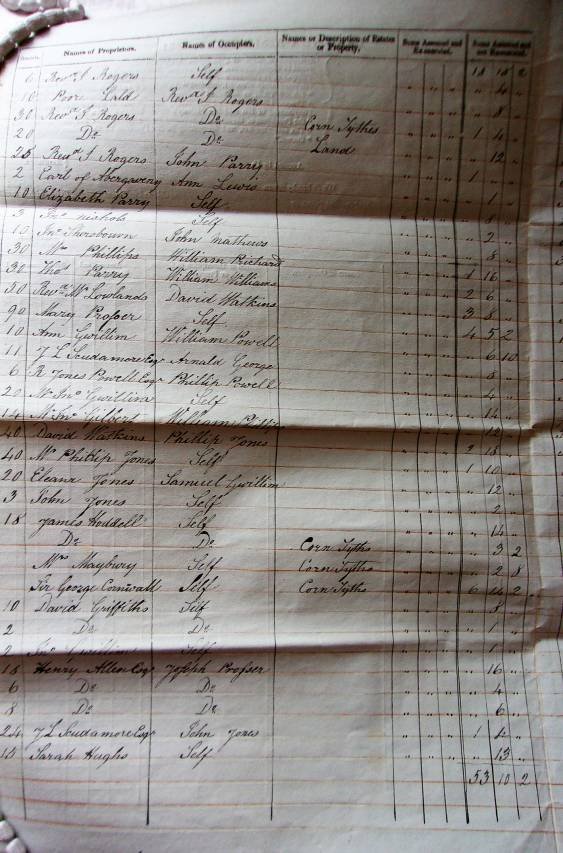 Names of Proprietors. Names of Occupiers. Names or Description of Estates or Property. Sums Assessed and Exonerated. Sums Assessed and not Exonerated.
6 Revd J Rogers Self 18 18 2
10 Poor Land Revd J Rogers " 4 "
30 Revd J Rogers Do " 8 "
20 Do Do Corn Tythes 1 4 "
25 Revd J Rogers John Parry Land " 12 "
2 Earl of Abergaveny Ann Lewis 1 " "
10 Elizabeth Parry Self " 1 "
3 Jno nichols Self
10 Jno Self John mathews " 2 "
30 Mr Phillips William Richard " 8 "
30 Thos Parry William Williams 1 16 "
50 Revd Mr Lowlands David Watkins 2 6 "
90 Mary Prosser Self 3 8 "
10 Ann Gwillim William Powell 4 5 2
11 J L Scudamore Esqr Arnald George " 6 10
6 R Jones Powell Esqr Phillip Powell " 8 "
20 Mr Jno Gwillim Self " 4 "
14 Mr Jno Gilbert William " 14 "
40 David Watkins Phillip Jones " 12 "
40 Mr Phillip Jones Self 2 18 "
20 Eleanr Jones Samuel Gwillim 1 10 "
3 John Jones Self " 12 "
18 James Hoddell Self " 2 "
Do Do Corn Tyths " 14 "
Mrs Maybury Self Corn Tyths " 3 2
Sir George Cornwall Self Corn Tyths " 2 8
10 David Griffiths Self 6 14 2
2 Do Do " 8 "
2 Jno Gwillim Self " 1 "
18 Henry Allen Esqr Joseph Prosser " 16 "
6 Do Do " 4 "
8 Do Do " 6 "
24 J L Scudamore Esqr John Jones 1 4 "
10 Sarah Hughs Self " 13 "
53 10 2